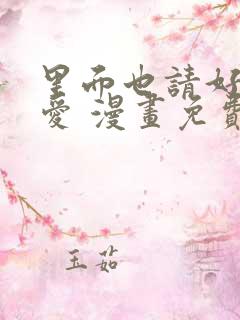 里而也請好
愛 漫畫免費
玉茹